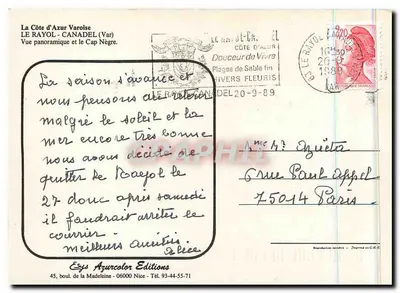 La Côte d'Azur Varoise
LE RAYOL - CANADEL (Var)
Vue panoramique et le Cap Nègre.
LE RAYOL-CANADEL
CÔTE D'AZUR
Douceur de Vivre
Plages de Sable fin
HIVERS FLEURIS
LE RAYOL CANADEL 20-9-89
La saison s'avance et
nous pensons au retour
malgré le soleil et la
mer encore très bonne
nous avons décidé de
quitter le Rayol le
27 donc après samedi
il faudrait arrêter le
courrier.
meilleurs amitiés
Alice
6 rue Paul Appel
75014 Paris
Edys Azurcolor Editions
45, boul. de la Madeleine - 06000 Nice - Tél. 93-44-55-71